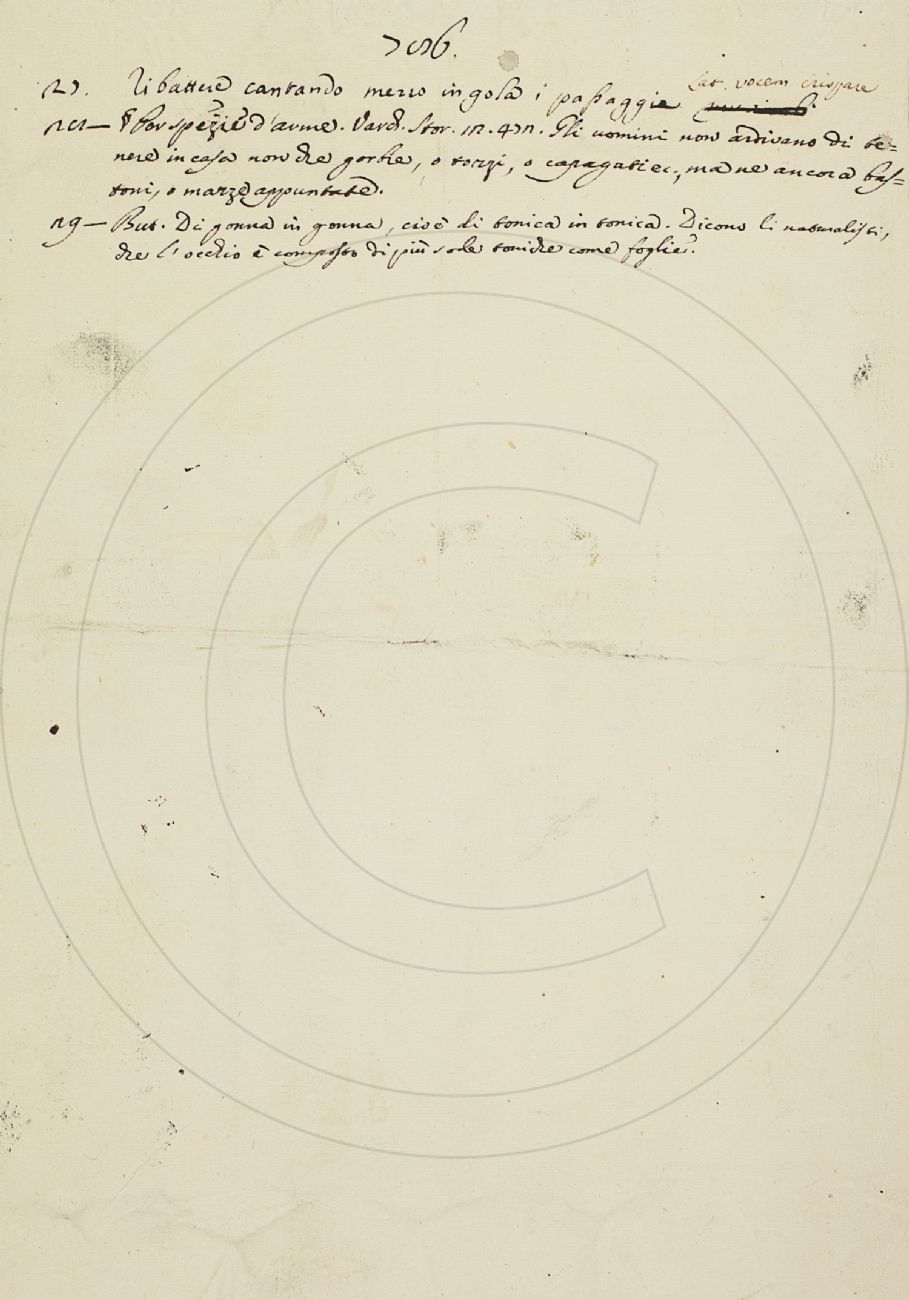 27. Ribattere cantando mezzo in gola i passaggi Lat. vocem crispare
§ Per spezie d'arme. Varch. Stor. 12. 471. Gli uomini non ardivano di te=
nere in casa non che gorbie, o ec., ma ne ancora bas=
toni, o mazze appuntate.
19— But. Di gonna in gonna, cioè di tonica in tonica. Dicono li naturalisti,
che l'occhio è composto di più sode toniche come foglie.